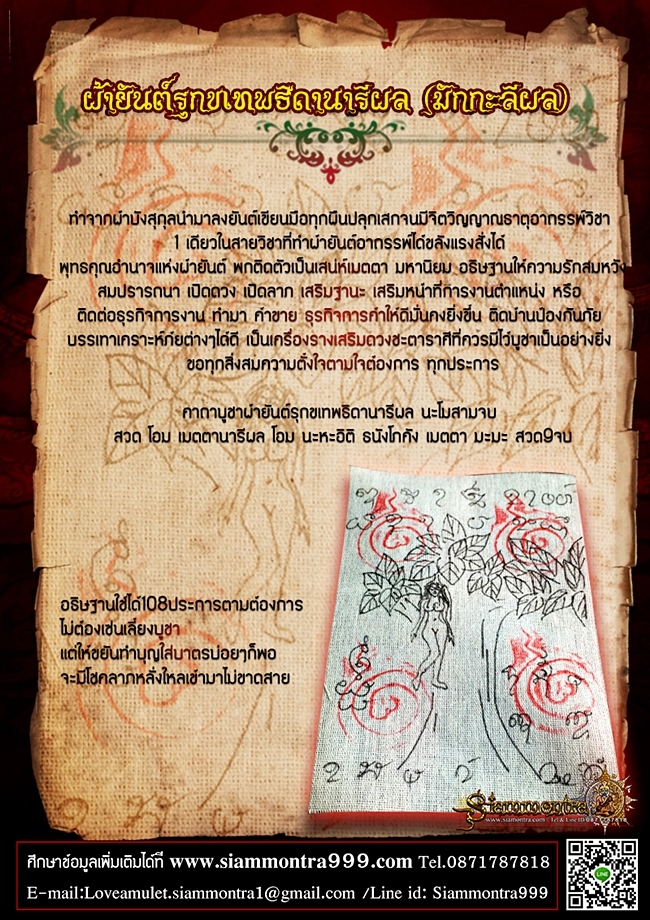 ผ้ายันต์รุกขเทพธิดานารีผล (มักกะลีผล)
ทำจากผ้าบังสุกุลนำมาลงยันต์เขียนมือทุกผืนปลุกเสกจนมีจิตวิญญาณธาตุอาถรรพ์วิชา
1 เดียวในสายวิชาที่ทำผ้ายันต์อาถรรพ์ได้ขลังแรงสั่งได้
พุทธคุณอำนาจแห่งผ้ายันต์ พกติดตัวเป็นเสน่ห์เมตตา มหานิยม อธิษฐานให้ความรักสมหวัง
สมปรารถนา เปิดดวง เปิดลาภ เสริมฐานะ เสริมหน้าที่การงานตำแหน่ง หรือ
ติดต่อธุรกิจการงาน ทำมา ค้าขาย ธุรกิจการค้าให้ดีมั่นคงยิ่งขึ้น ติดบ้านป้องกันภัย
บรรเทาเคราะห์ภัยต่างๆได้ดี เป็นเครื่องรางเสริมดวงชะตาราศีที่ควรมีไว้บูชาเป็นอย่างยิ่ง
ขอทุกสิ่งสมความตั้งใจตามใจต้องการ ทุกประการ
คาถาบูชาผ้ายันต์รุกขเทพธิดานารีผล นะโมสามจบ
สวด โอม เมตตานารีผล โอม นะหะอิติ ธนังโภคัง เมตตา มะมะ สวด9จบ
อธิษฐานใช้ได้108ประการตามต้องการ
ไม่ต้องเซ่นเลี้ยงบูชา
แต่ให้ขยันทำบุญใส่บาตรบ่อยๆก็พอ
จะมีโชคลาภหลั่งไหลเข้ามาไม่ขาดสาย
Siammontra
www.siammontra.com
ศึกษาข้อมูลเพิ่มเติมได้ที่ www.siammontra999.com Tel.0871787818
E-mail:Loveamulet.siammontra1@gmail.com /Line id: Siammontra999
LINE